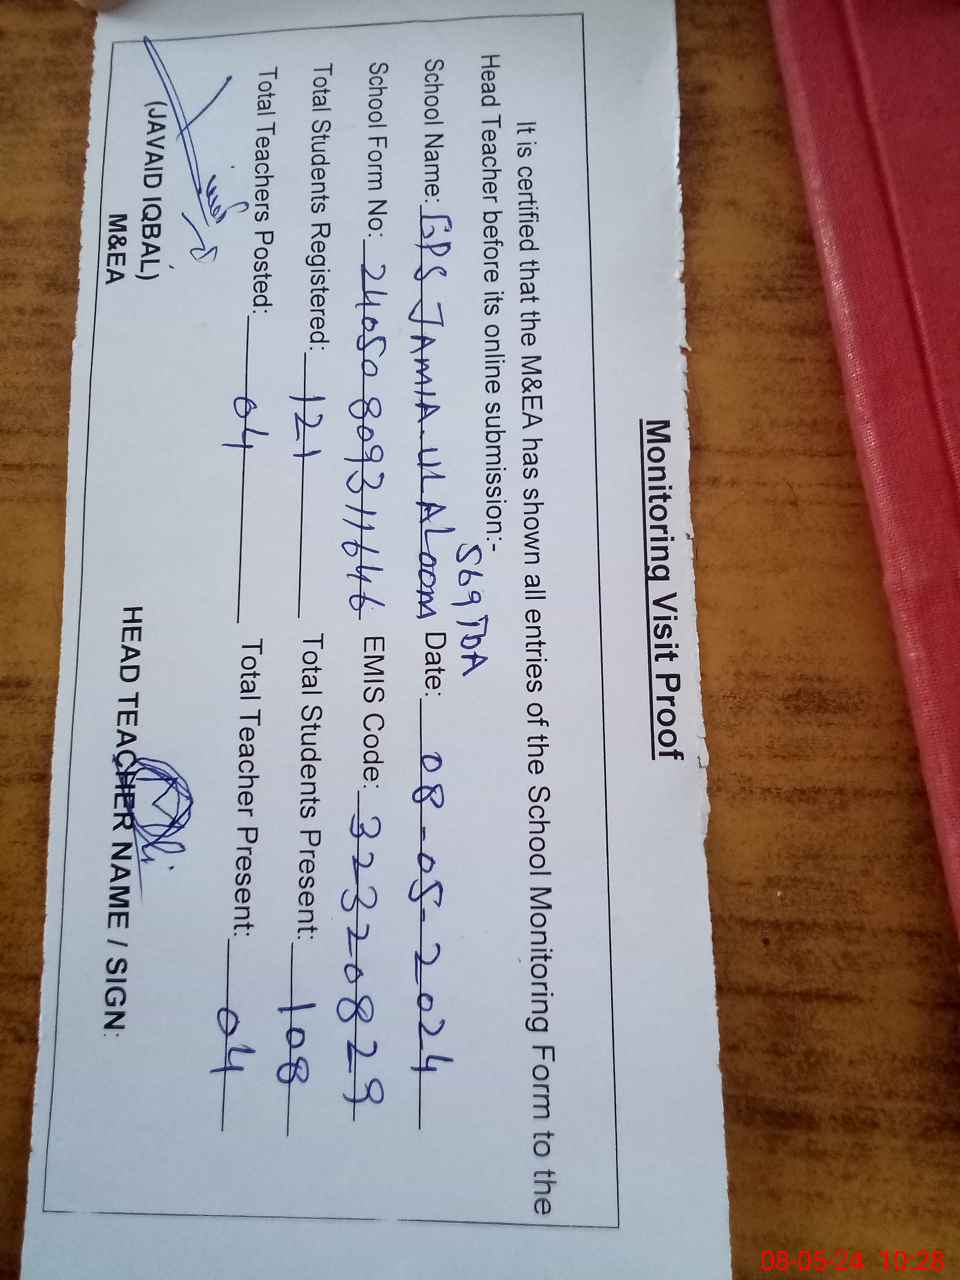 Monitoring Visit Proof
It is certified that the M&EA has shown all entries of the School Monitoring Form to the
Head Teacher before its online submission:-
569 TDA
School Name: GPS JAMIA.UL ALOOM Date: 08-05-2024
School Form No: 24050809311646 EMIS Code: 32320829
Total Students Registered: 121 Total Students Present: 108
Total Teachers Posted: 04 Total Teacher Present: 04
(JAVAID IQBAL)
M&EA
HEAD TEACHER NAME / SIGN:
08-05-24 10:28